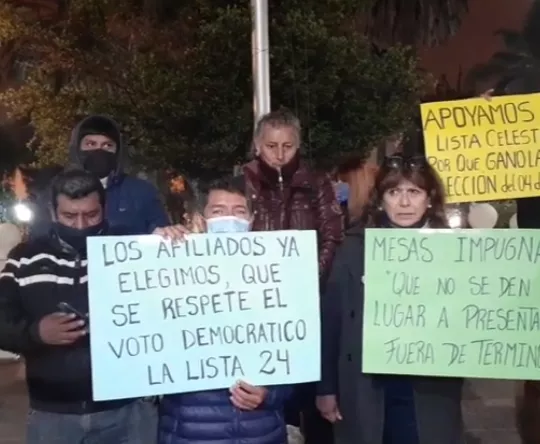 APOYAMOS
LISTA CELEST
POR QUE GANO LA
ECCION del 04 d
LOS AFILIADOS YA
ELEGIMOS, QUE
SE RESPETE EL
VOTO DEMOCRATICO
LA LISTA 24
MESAS IMPUGNA
"QUE NO SE DEN
LUGAR A PRESENTA
FUERA DE TERMIN